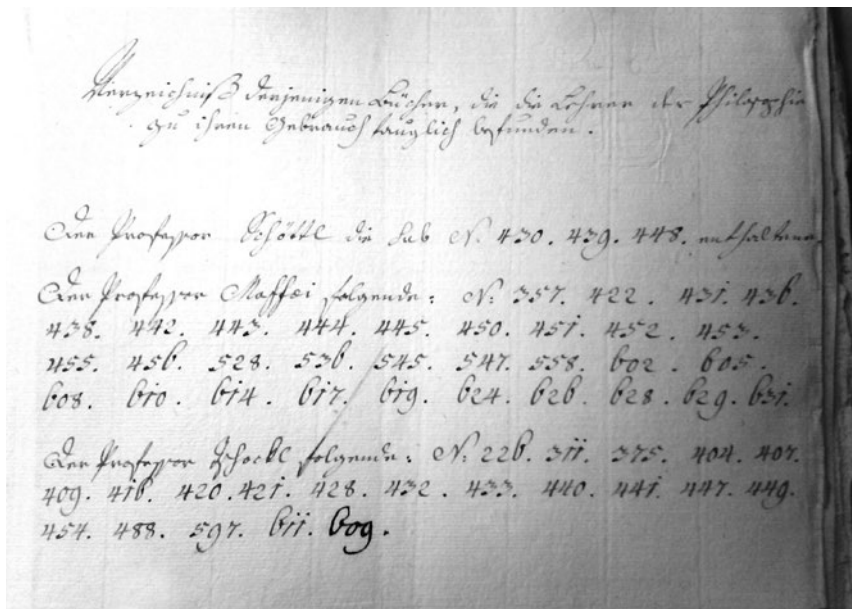 Verzeichniß derjenigen Bücher, die die Lehrer der Philosophie
zu ihren Gebrauch tauglich befunden.
Der Professor Schöttl die sub N. 430. 439. 448. enthaltene.
Der Professor Maffei folgende: N: 357. 422. 431. 436.
438. 442. 443. 444. 445. 450. 451. 452. 453.
455. 456. 528. 536. 545. 547. 558. 602. 605.
608. 610. 614. 617. 619. 624. 626. 628. 629. 631.
Der Professor folgende: N: 226. 311. 375. 404. 407.
409. 416. 420. 421. 428. 432. 433. 440. 441. 447. 449.
454. 488. 597. 611. 609.